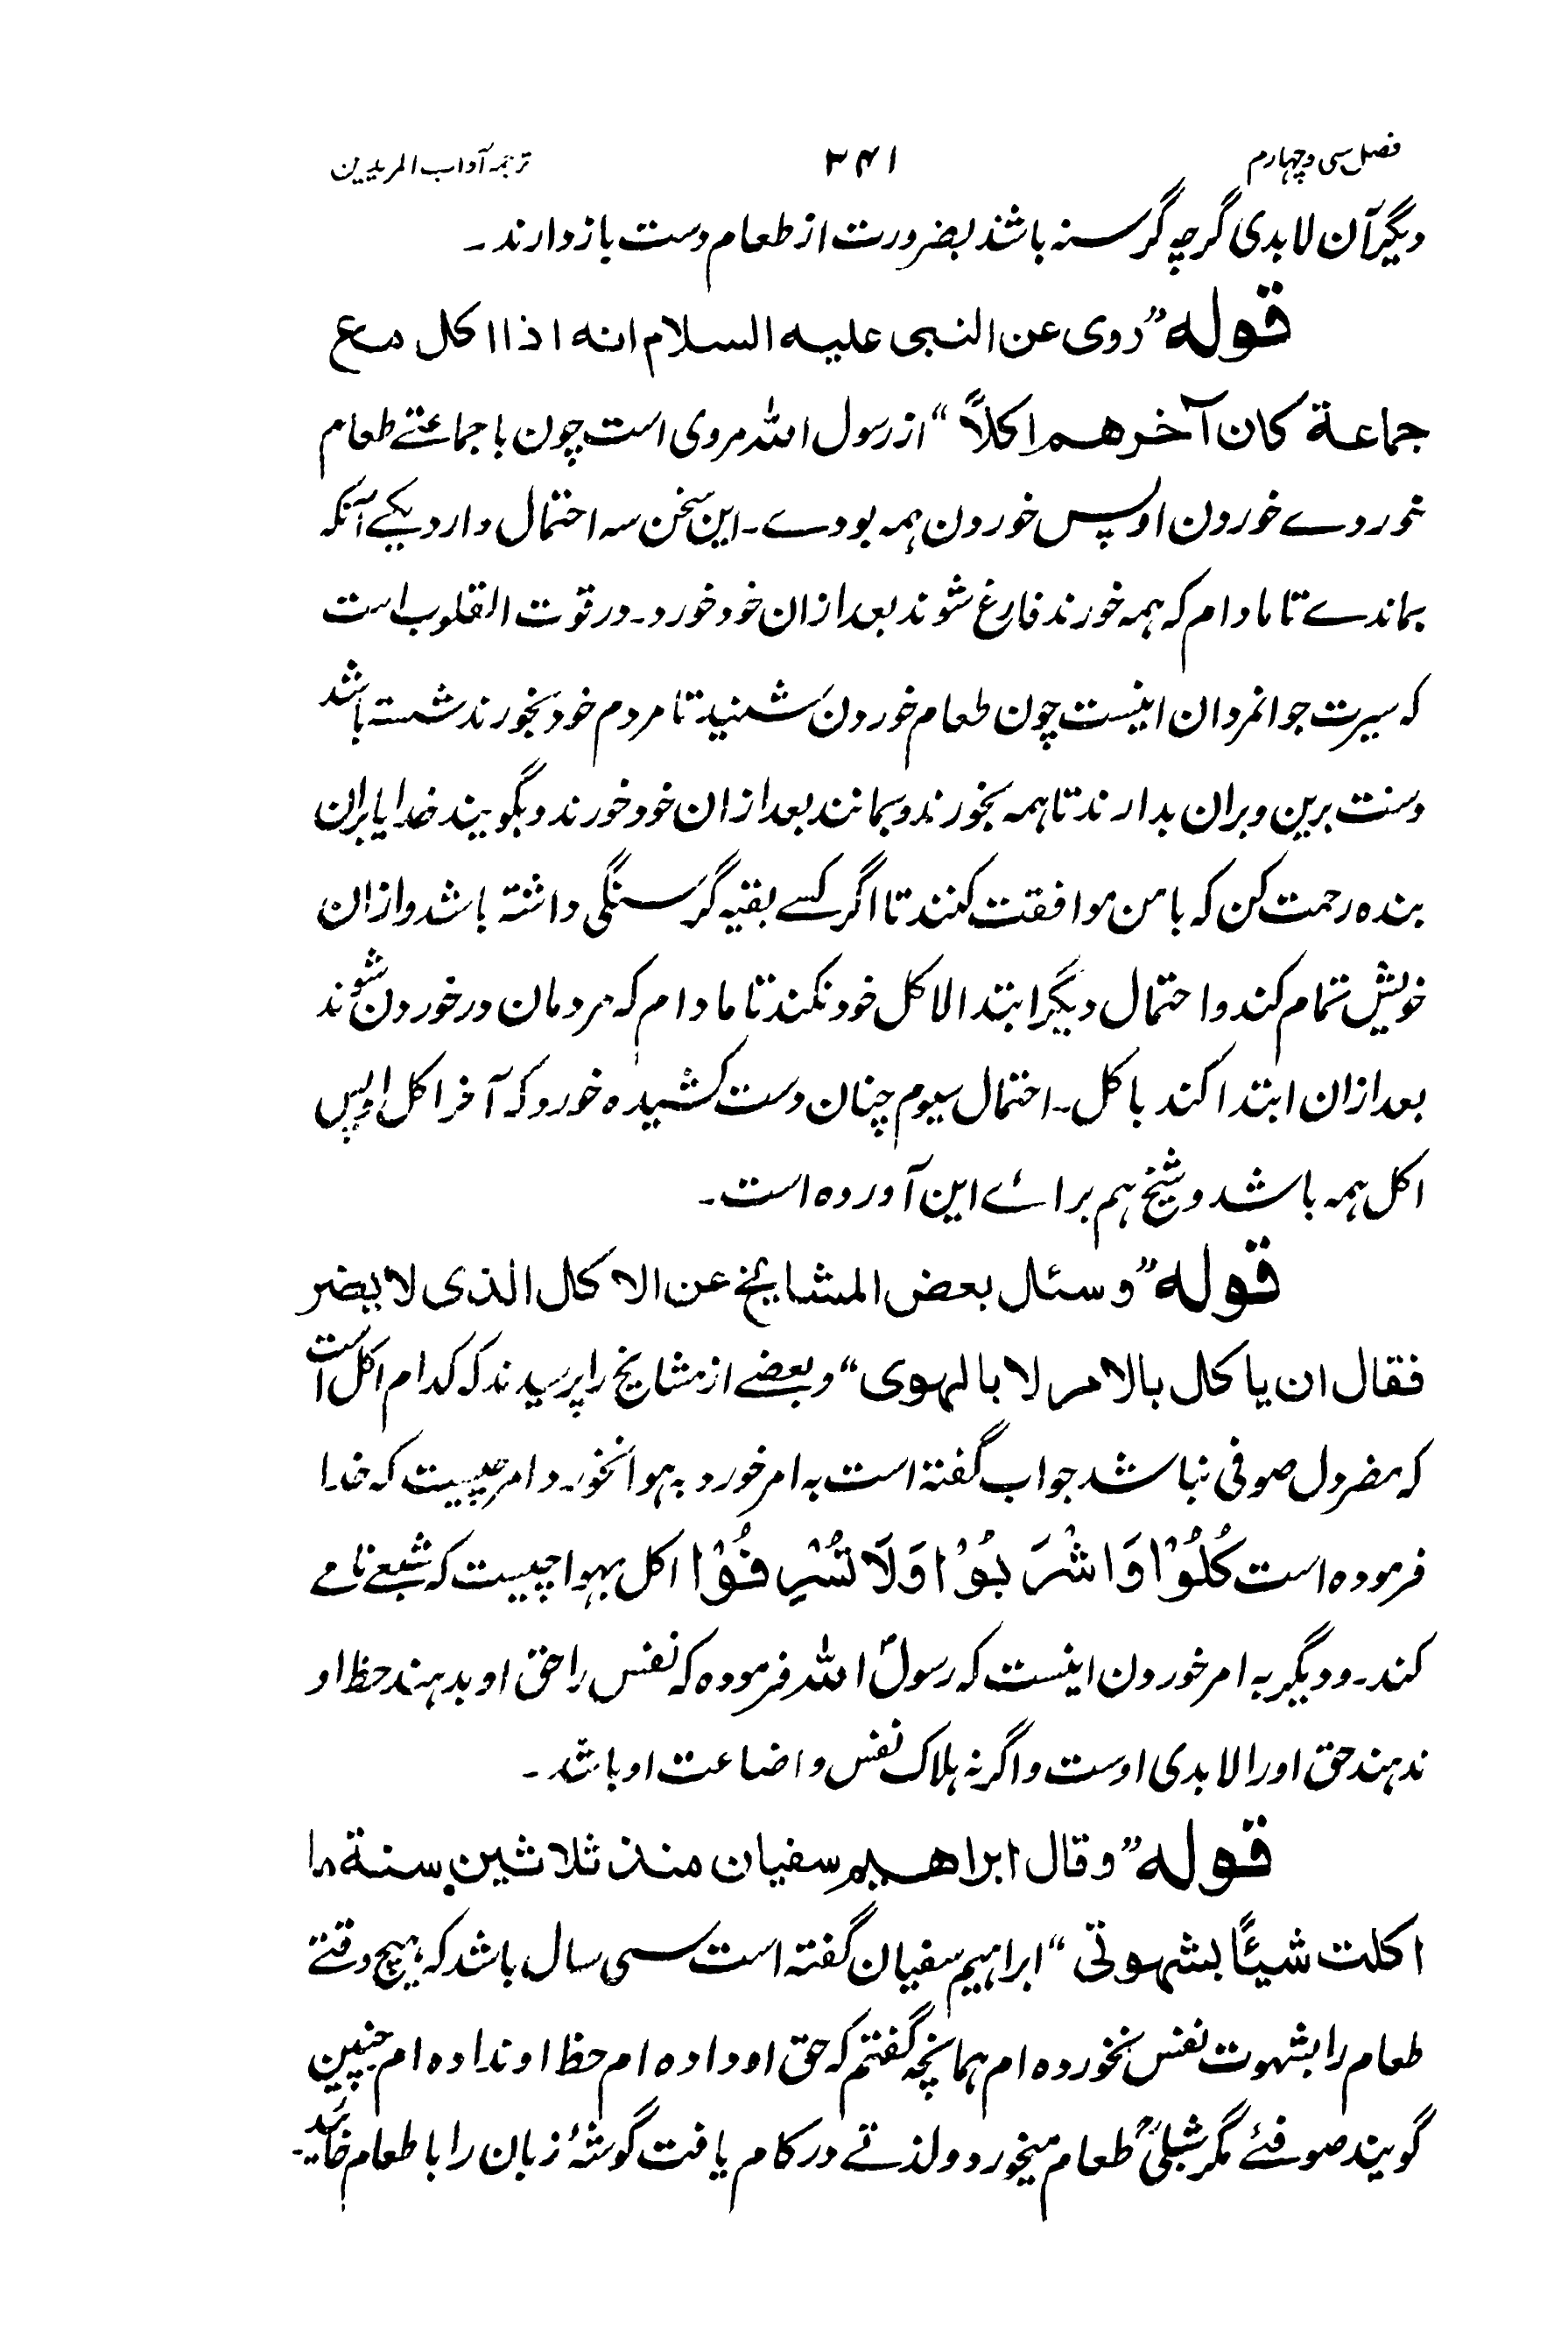 فصل سی و چهارم ۳۴۱ ترجمہ آداب المریدین
دیگر آن لابدی گرچہ گرسنہ باشد بضرورت از طعام دست باز دارند۔
قولہ ”روی عن النبی علیہ السلام انہ اذا اکل مع
جماعة کان آخرھم اکلاً“ از رسول اللہ مروی است چون با جماعتے طعام
خوردے خوردن او پس خوردن ہمہ بودے۔ این سخن سہ احتمال دارد یکے آنکہ
بماندے تا مادام کہ ہمہ خورند فارغ شوند بعد ازان خود خورد۔ در قوت القلوب است
کہ سیرت جوانمردان اینست چون طعام خوردن شنید تا مردم خود بخورند شستہ باشد
دست برین و بران بدارند تا ہمہ بخورند و بمانند بعد ازان خود خورند و بگویند خدایا بران
بندہ رحمت کن کہ با من موافقت کنند تا اگر کسے بقیہ گرسنگی داشتہ باشد و ازان
خویش تمام کند و احتمال دیگر ابتدا لاکل خود نکند تا مادام کہ مردمان در خوردن شوند
بعد ازان ابتدا کند باکل۔ احتمال سیوم چنان دست کشیدہ خورد کہ آخر اکل او پس
اکل ہمہ باشد و شیخ ہم برائے این آوردہ است۔
قولہ ”وسئل بعض المشایخ عن الاکل الذی لا یضر
فقال ان یاکل بالامر لا بالہوی“ و بعضے از مشایخ را پرسیدند کہ کدام اکل است
کہ مضر دل صوفی نباشد جواب گفتہ است بہ امر خورد بہ ہوا نخورد امر چیست کہ خدا
فرمودہ است کُلُوْا وَاشْرَبُوْا وَلَا تُسْرِفُوْا اکل بہوا چیست کہ شبعے تامے
کند۔ و دیگر بہ امر خوردن اینست کہ رسولؐ اللہ فرمودہ کہ نفس را حق او بدہند حظ او
ندہند حق اورا لابدی اوست و اگر نہ ہلاک نفس و اضاعت او باشد۔
قولہ ”وقال ابراھیم سفیان منذ ثلاثین سنة ما
اکلت شیئًا بشھوتی“ ابراہیم سفیان گفتہ است سی سال باشد کہ ہیچ وقتے
طعام را بشہوت نفس نخوردہ ام ہمانچہ گفتم کہ حق او دادہ ام حظ او ندادہ ام چنین
گویند صوفئے مگر شبلیؒ طعام میخورد و لذتے در کام یافت گوشۂ زبان را با طعام خائید۔